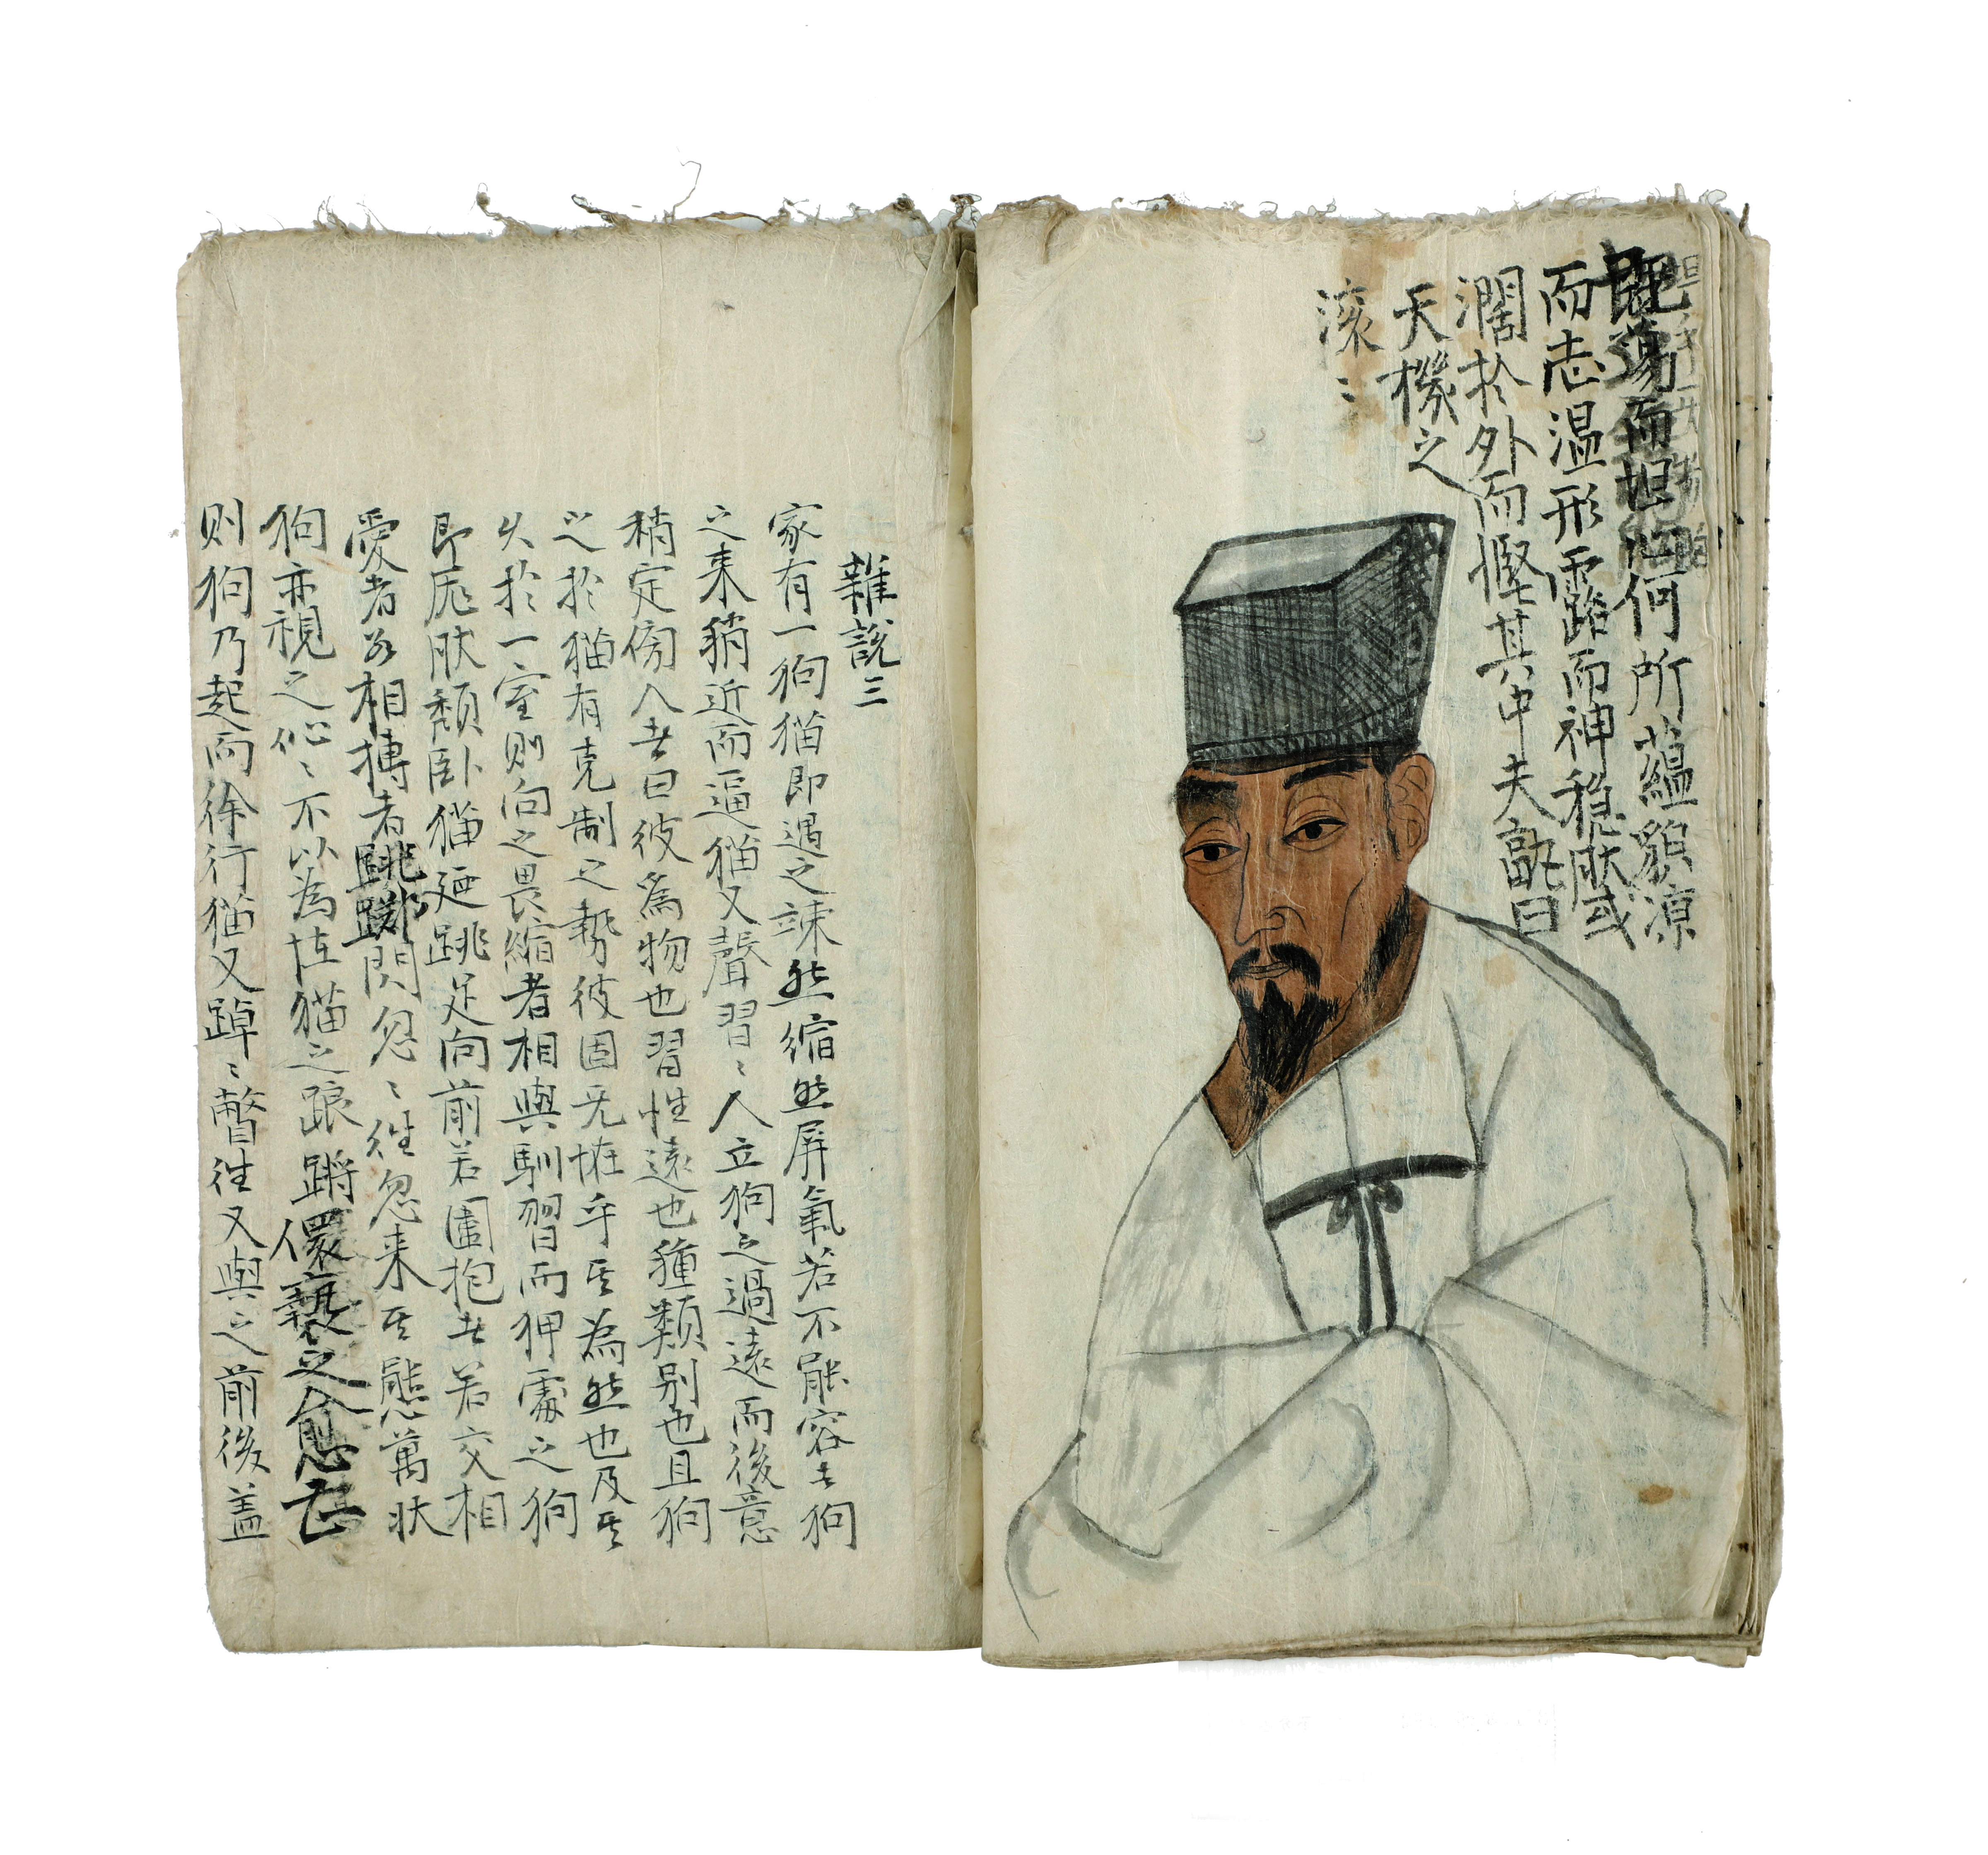 既蕩而坦何所蘊貌凉
而志溫形露而神穩肰或
濶於外而慳其中夫孰曰
天機之
滚〻
雜說三
家有一狗猫即遇之竦然缩然屏氣若不能容者狗
之来稍近而逼猫又聲習〻人立狗之過遠而後意
稍定傍人者曰彼為物也習性遠也種類别也且狗
之於猫有克制之勢彼固无恠乎其為然也及其
久於一室則向之畏縮者相與馴習而狎處之狗
即厖肰頹卧猫廼跳足向前若圍抱者若交相
愛者若相搏者跳躑閃忽〻往忽来其態萬狀
狗亦視之伈〻不以為恠猫之踉蹡儇褻之愈甚
則狗乃起而徐行猫又踔〻瞥往又與之前後盖